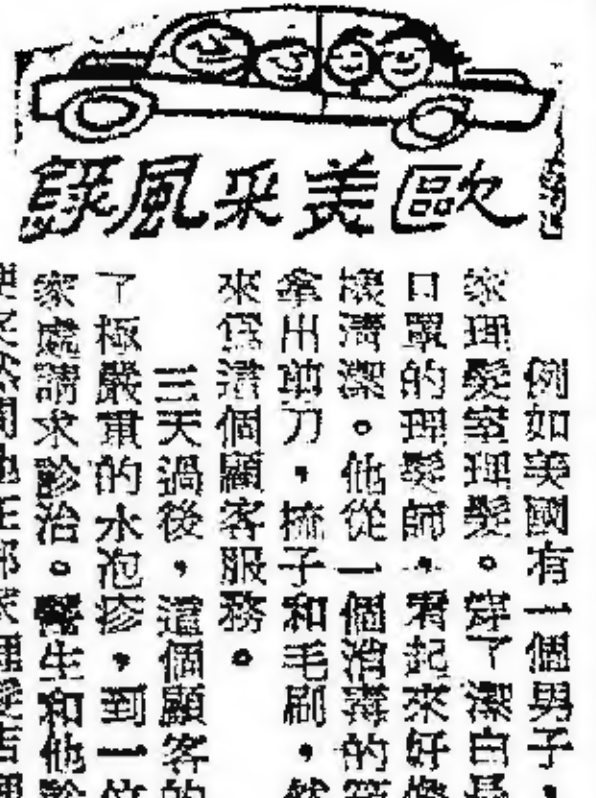 歐美采風錄
例如美國有一個男子，
家理髮室理髮。穿了潔白長
口罩的理髮師，看起來好像
樣清潔。他從一個消毒的
拿出剪刀，梳子和毛刷，然
來爲這個顧客服務。
三天過後，這個顧客的
了極嚴重的水泡疹，到一位
家處請求診治。醫生和他診